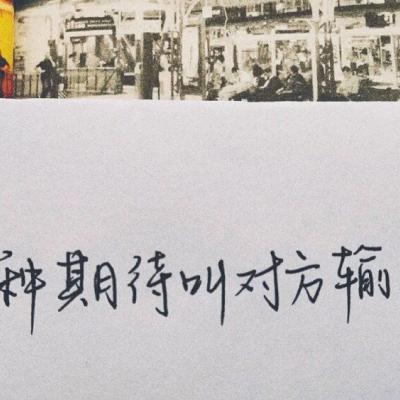 种期待叫对方输